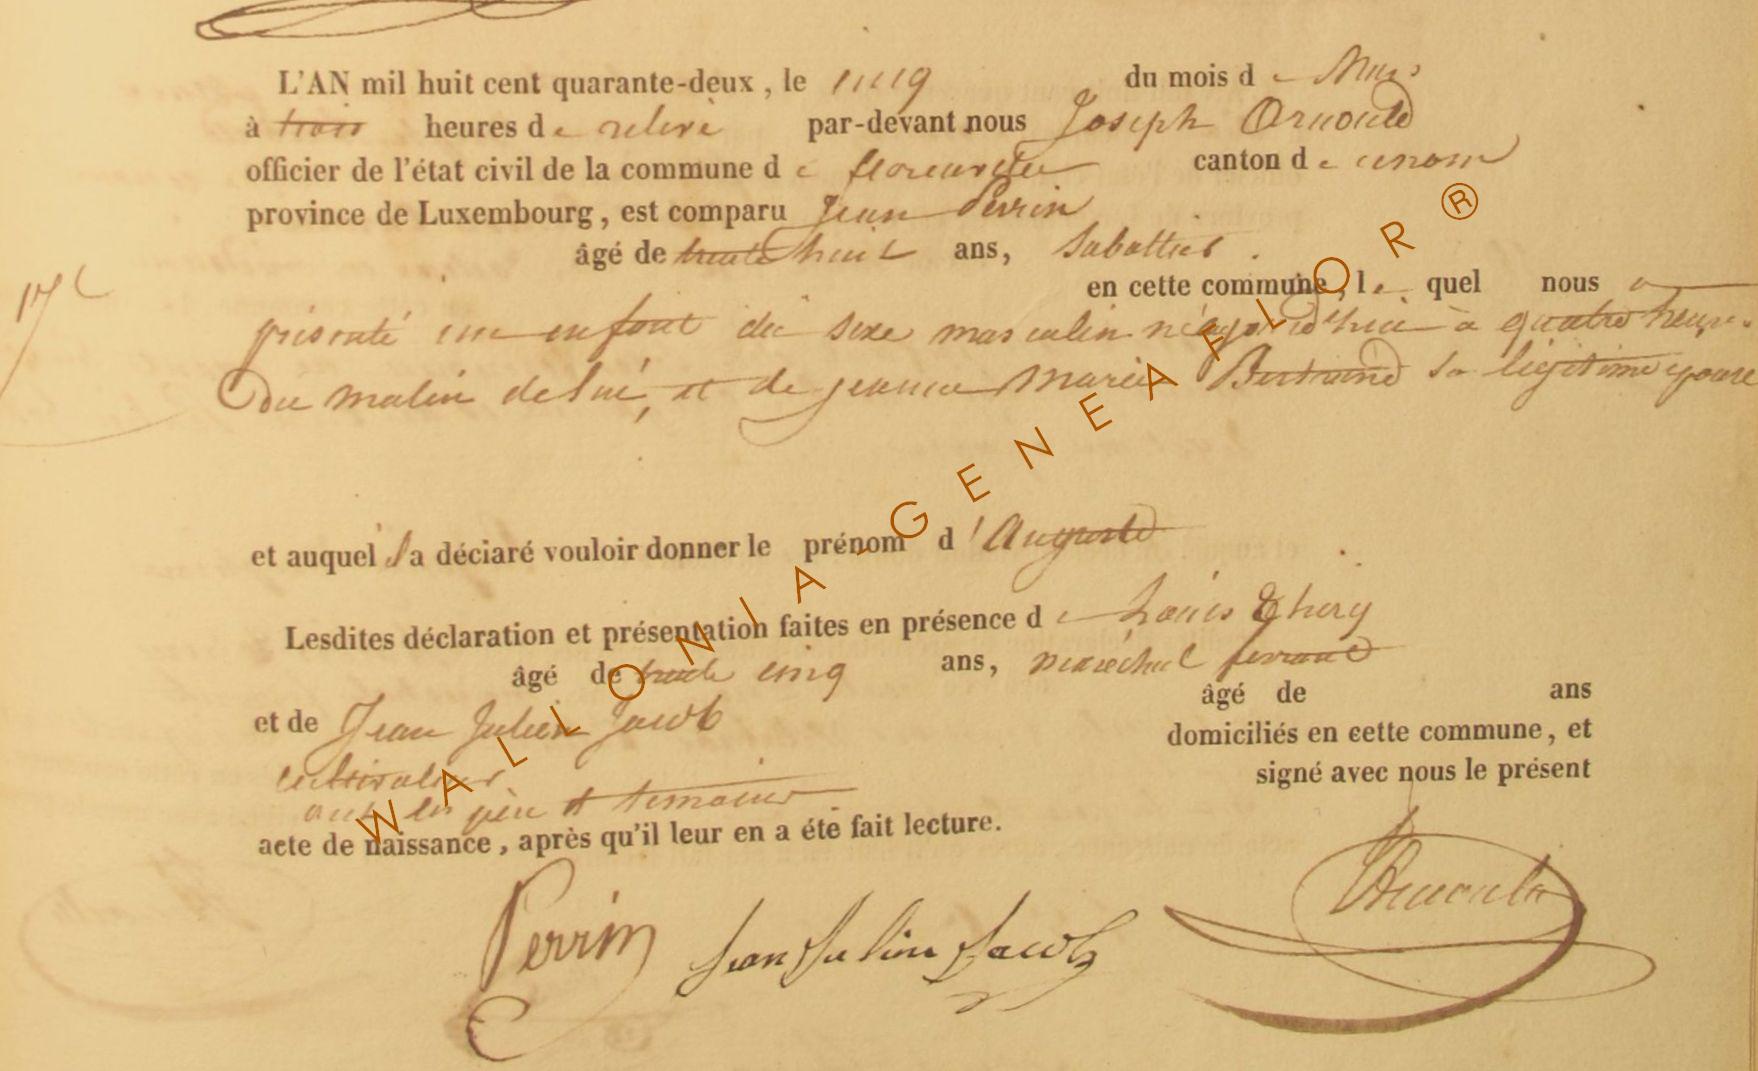 L'AN mil huit cent quarante-deux, le cinq du mois de Mars
à trois heures de par-devant nous Joseph Arnould
officier de l'état civil de la commune de florenville canton de
province de Luxembourg, est comparu Jean Perrin
âgé de trente huit ans, Sabottier.
en cette commune, le quel nous a
présenté un enfant du sexe masculin né aujourd'hui à quatre heures
Du matin de lui, et de jeanne Marie Bertrand sa légitime épouse
17e
et auquel il a déclaré vouloir donner le prénom d'Auguste
Lesdites déclaration et présentation faites en présence de Louis Thery
âgé de trente cinq ans, maréchal ferrant
et de Jean Julien Jacob âgé de ans
cultivateur domiciliés en cette commune, et
ont le père et témoins signé avec nous le présent
acte de naissance, après qu'il leur en a été fait lecture.
Perrin Jean Julien Jacob Arnould
WALLONIA-GENEAFLOR®